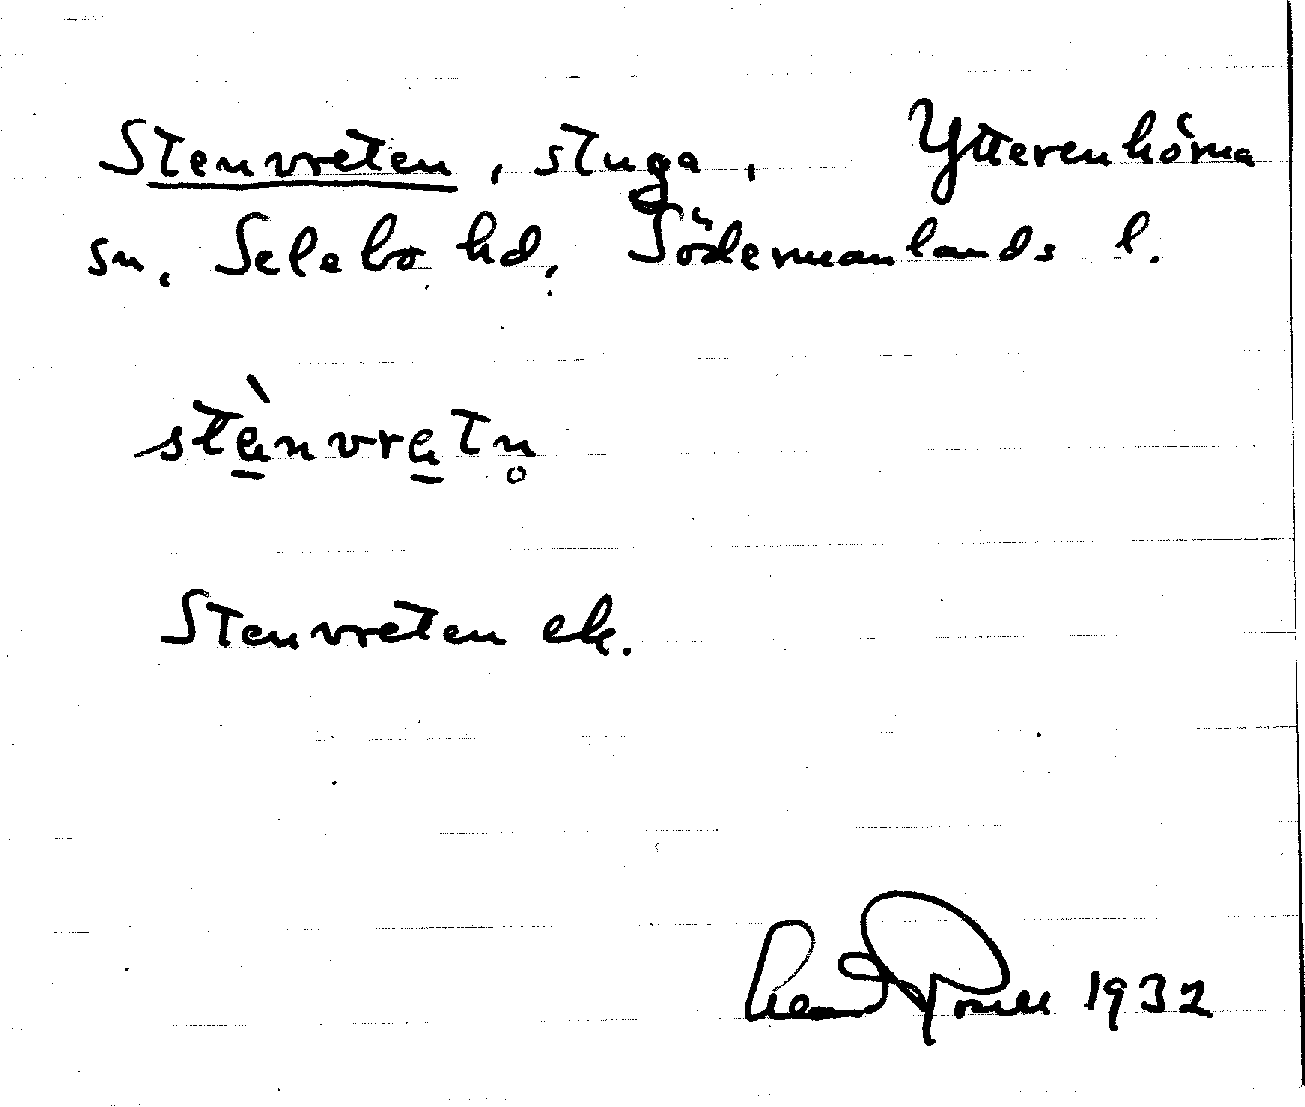 Stenvreten, stuga, Ytterenhörna
sn, Selebo hd, Södermanlands l.
stèn̲vre̲tn̥
Stenvreten ek.
1932